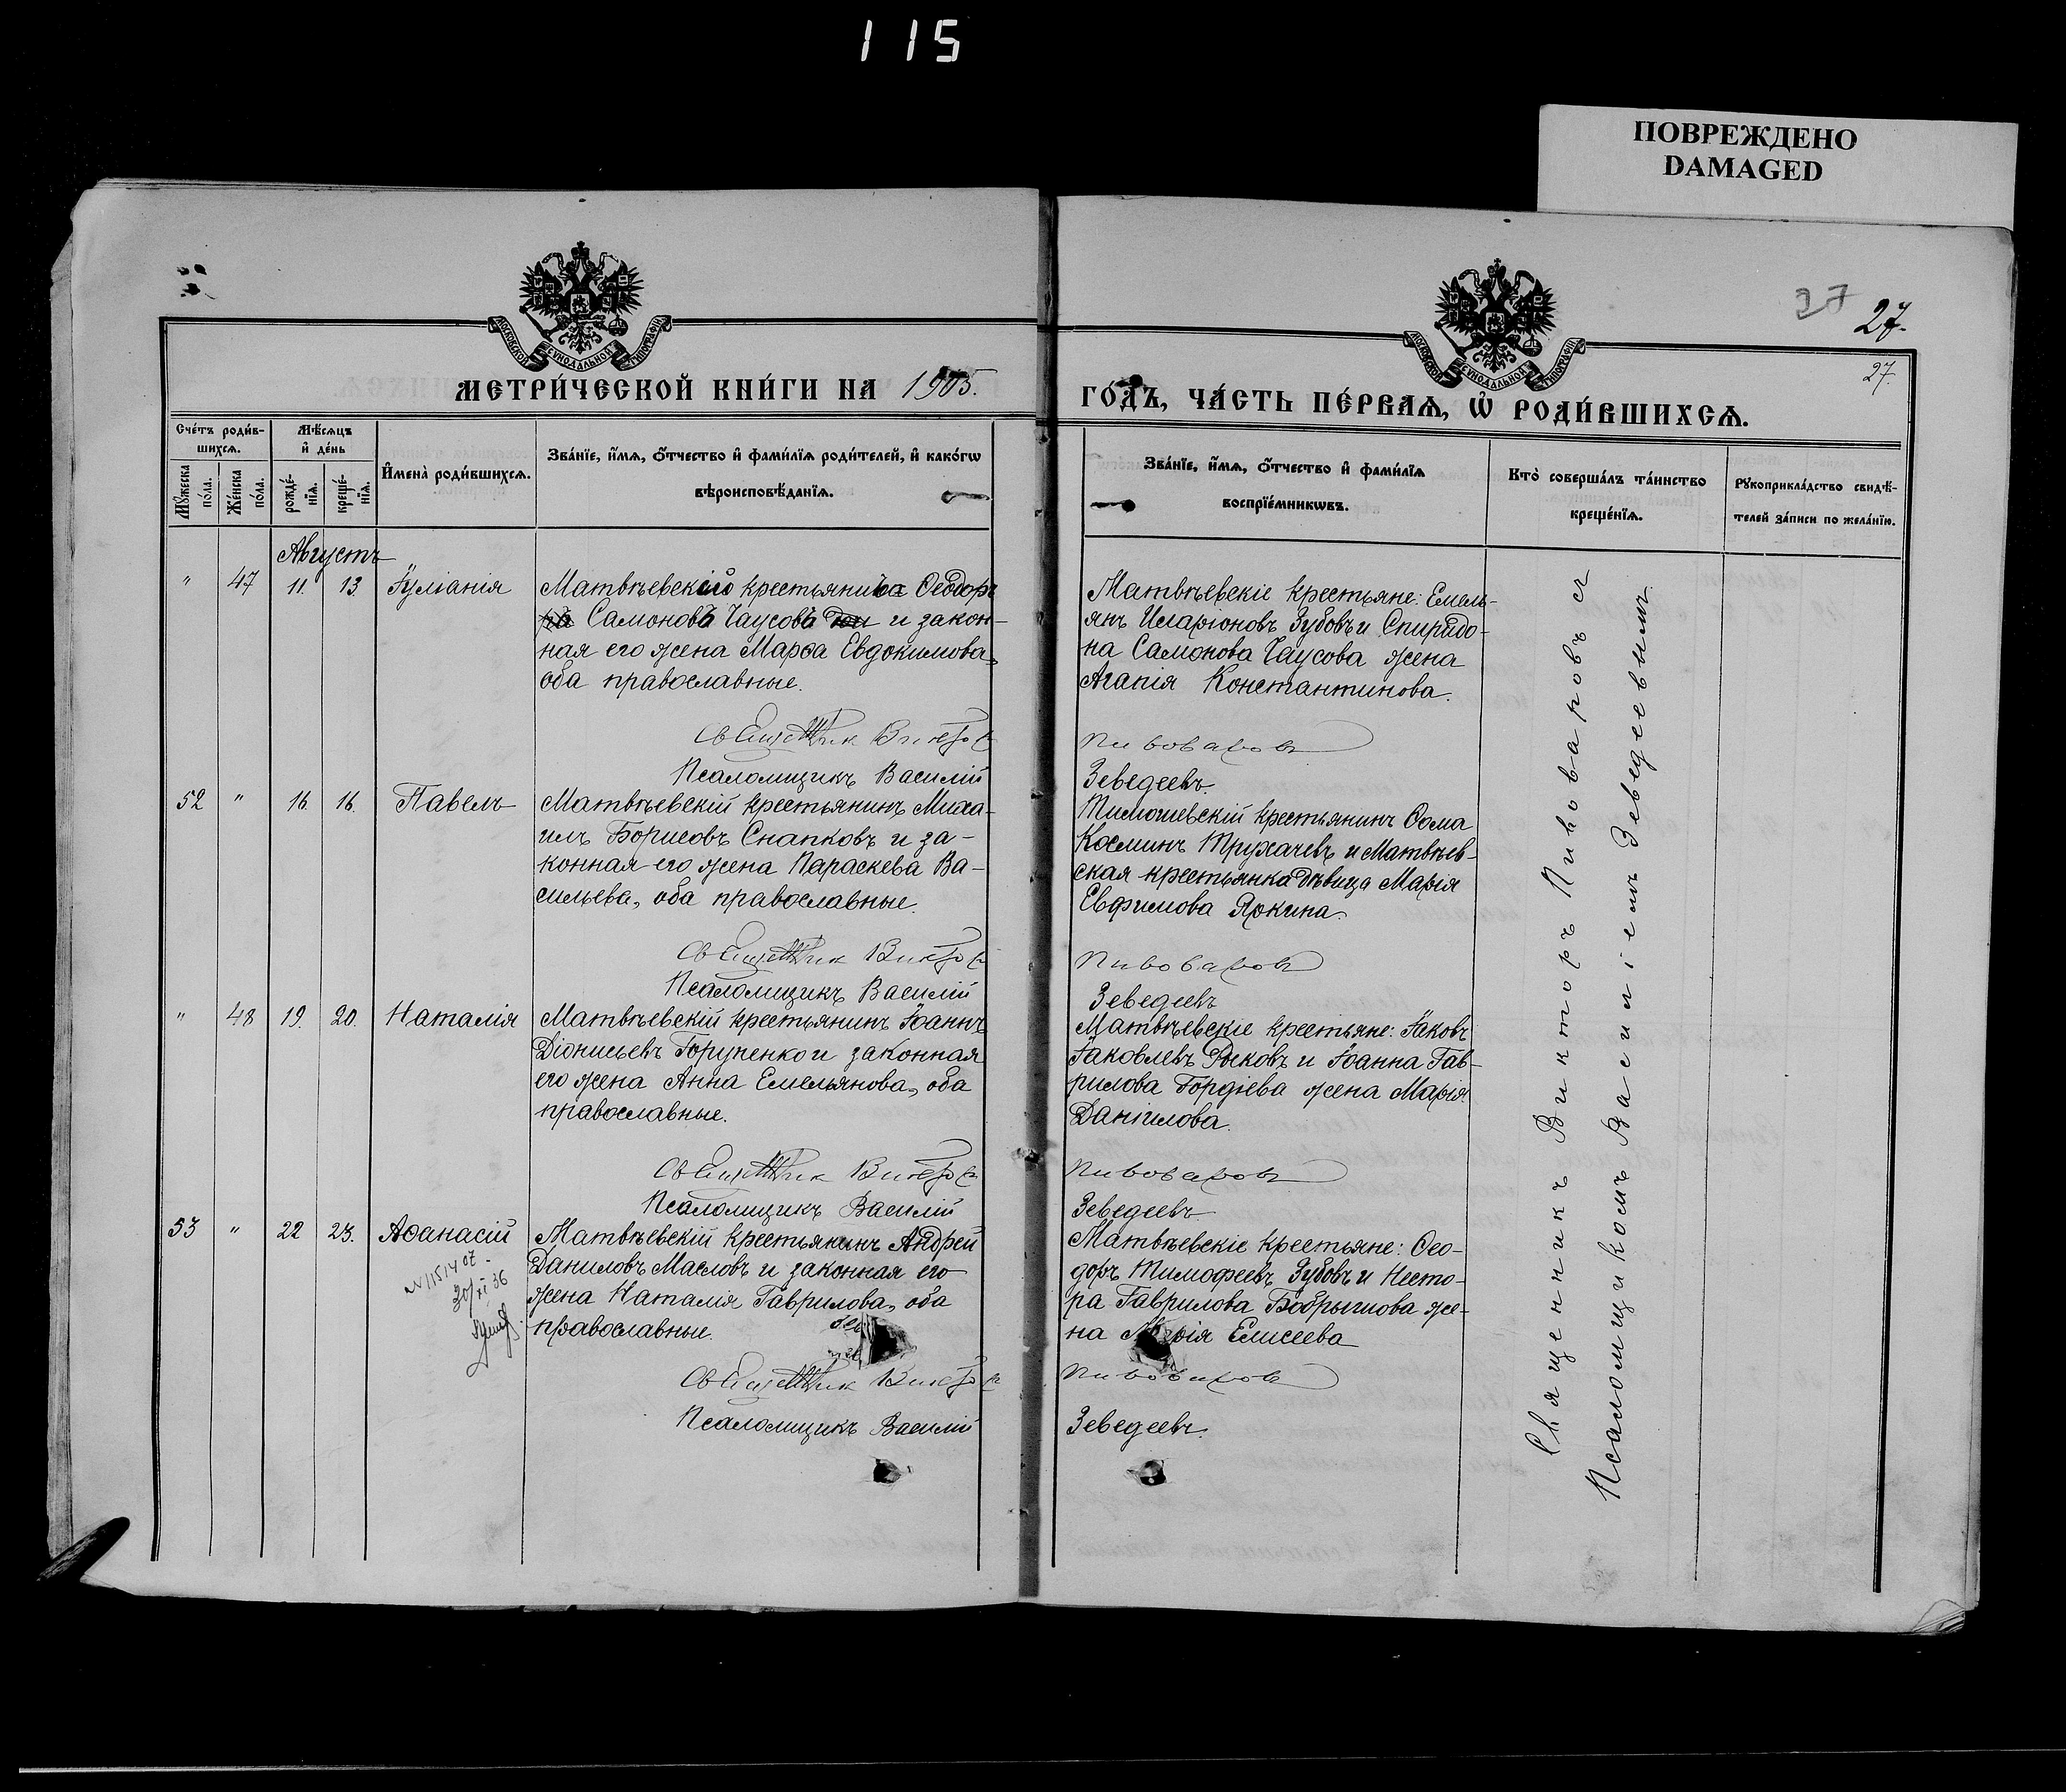 115
ПОВРЕЖДЕНО
DAMAGED
27 27.
27.
МОСКОВСКОЙ СУНОДАЛЬНОЙ ТИПОГРАФІИ
МОСКОВСКОЙ СУНОДАЛЬНОЙ ТИПОГРАФІИ
МЕТРИ́ЧЕСКОЙ КНИ́ГИ НА 1905.
ГО́ДЪ, ЧА́СТЬ ПЕ́РВАѦ, Ѡ҆ РОДИ́ВШИХСѦ.
Сче́тъ роди́в-
шихсѧ.
Мꙋ́жеска
по́ла.
Же́нска
по́ла.
Мѣ́сѧцъ
и҆ де́нь
рожде́-
нїѧ.
креще́-
нїѧ.
И҆мена̀ роди́вшихсѧ.
Зва́нїе, и҆́мѧ, ѻ҆́тчество и҆ фами́лїѧ роди́телей, и҆ како́гѡ
вѣроисповѣ́данїѧ.
Зва́нїе, и҆́мѧ, ѻ҆́тчество и҆ фами́лїѧ
воспрїе́мникѡвъ.
Кто̀ соверша́лъ та́инство
креще́нїѧ.
Рꙋкоприкла́дство свидѣ́-
телей за́писи по жела́нїю.
Августъ
" 47 11. 13. Іуліанія
Матвѣевскій крестьянинъ Ѳеодоръ
Самоновъ Чаусовъ и закон-
ная его жена Марѳа Евдокимова,
оба православные.
Священникъ Викторъ
Псаломщикъ Василій
Матвѣевскіе крестьяне: Емель-
янъ Иларіоновъ Зубовъ и Спиридо-
на Самонова Чаусова жена
Агапія Константинова.
Пивоваровъ
Зеведеевъ.
52 " 16. 16. Павелъ
Матвѣевскій крестьянинъ Миха-
илъ Борисовъ Снапковъ и за-
конная его жена Параскева Ва-
сильева, оба православные.
Священникъ Викторъ
Псаломщикъ Василій
Тимошевскій крестьянинъ Ѳома
Косминъ Трухачевъ и Матвѣев-
ская крестьянка дѣвица Марія
Евфимова Яркина.
Пивоваровъ
Зеведеевъ
" 48 19. 20. Наталія
Матвѣевскій крестьянинъ Іоаннъ
Діонисьевъ Горупенко и законная
его жена Анна Емельянова, оба
православные.
Священникъ Викторъ
Псаломщикъ Василій
Матвѣевскіе крестьяне: Іаковъ
Іаковлевъ Рыковъ и Іоанна Гав-
рилова Гордіева жена Марія
Даніилова.
Пивоваровъ
Зеведеевъ.
53 " 22 23. Аѳанасій
Матвѣевскій крестьянинъ Андрей
Даниловъ Масловъ и законная его
жена Наталія Гаврилова, оба
православные.
Священникъ Викторъ
Псаломщикъ Василій
30/XI 36
Матвѣевскіе крестьяне: Ѳео-
доръ Тимофеевъ Зубовъ и Несто-
ра Гаврилова Бобрышова же-
на Марія Елисеева
Пивоваровъ
Зеведеевъ.
Священникъ Викторъ Пивоваровъ съ
Псаломщикомъ Василіемъ Зеведеевымъ.